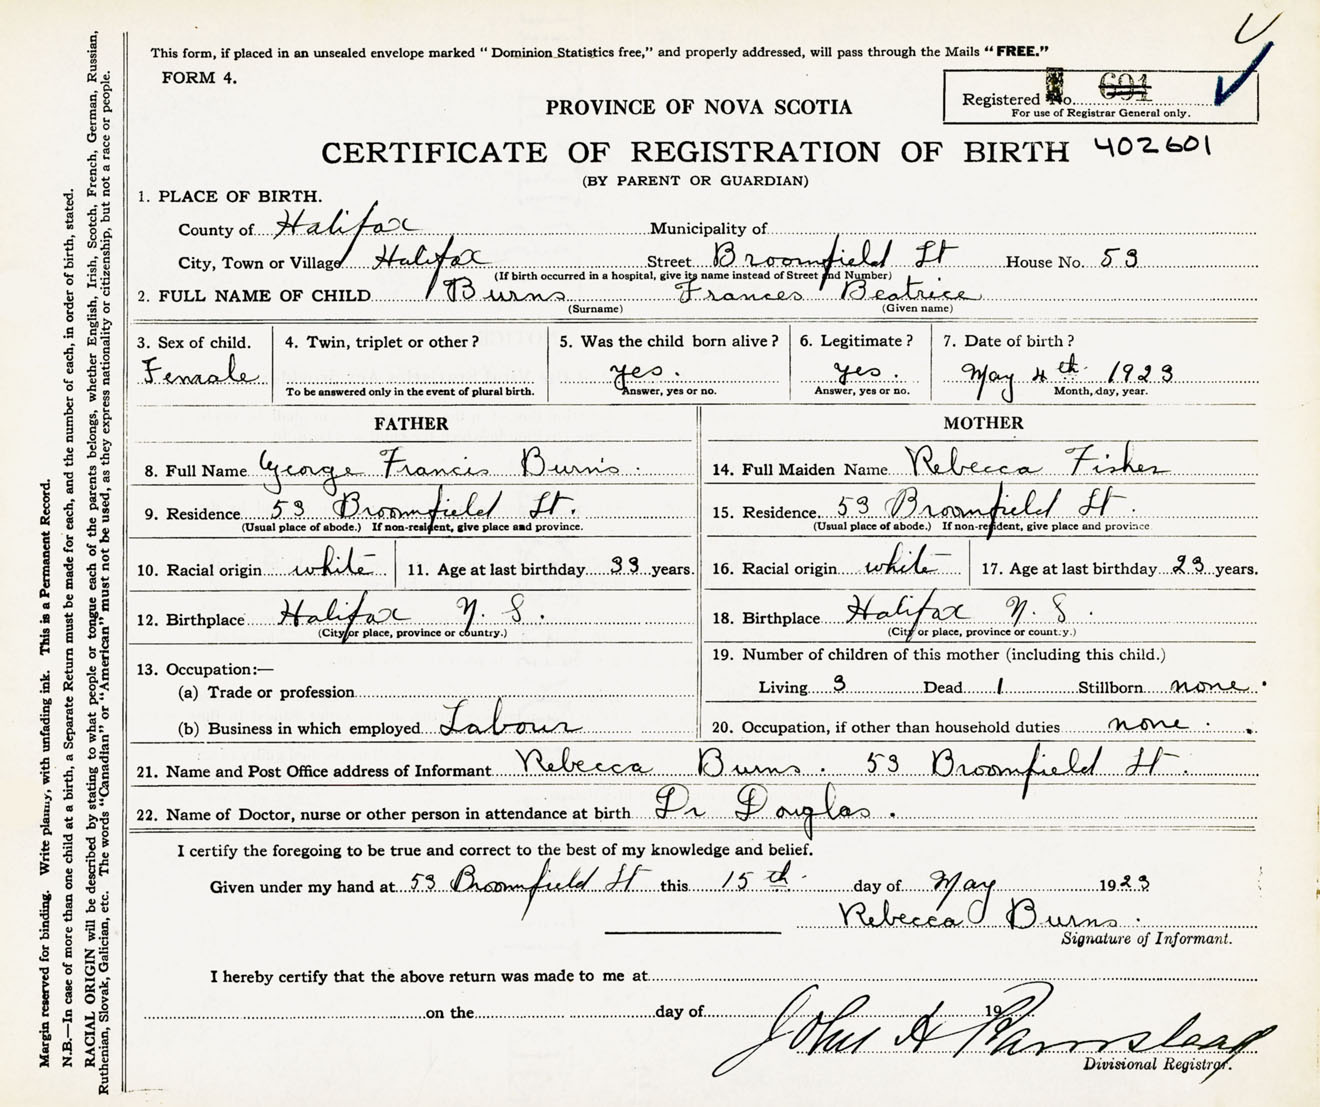 This form, if placed in an unsealed envelope marked “ Dominion Statistics free,” and properly addressed, will pass through the Mails “ FREE.”
FORM 4.
Registered No. 601
For use of Registrar General only.
PROVINCE OF NOVA SCOTIA
CERTIFICATE OF REGISTRATION OF BIRTH 402601
(BY PARENT OR GUARDIAN)
1. PLACE OF BIRTH.
County of Halifax Municipality of
City, Town or Village Halifax Street Broomfield St House No. 53
(If birth occurred in a hospital, give its name instead of Street and Number)
2. FULL NAME OF CHILD Burns Frances Beatrice
(Surname) (Given name)
3. Sex of child. 4. Twin, triplet or other? 5. Was the child born alive? 6. Legitimate? 7. Date of birth?
Female yes. yes. May 4th 1923
To be answered only in the event of plural birth. Answer, yes or no. Answer, yes or no. Month, day, year.
FATHER MOTHER
8. Full Name George Francis Burns. 14. Full Maiden Name Rebecca Fisher
9. Residence 53 Broomfield St. 15. Residence. 53 Broomfield St.
(Usual place of abode.) If non-resident, give place and province. (Usual place of abode.) If non-resident, give place and province
10. Racial origin white 11. Age at last birthday 33 years. 16. Racial origin white 17. Age at last birthday 23 years.
12. Birthplace Halifax N. S. 18. Birthplace Halifax N. S.
(City or place, province or country.) (City or place, province or country.)
13. Occupation:— 19. Number of children of this mother (including this child.)
(a) Trade or profession Living 3 Dead 1 Stillborn none.
(b) Business in which employed Labour 20. Occupation, if other than household duties none.
21. Name and Post Office address of Informant Rebecca Burns. 53 Broomfield St.
22. Name of Doctor, nurse or other person in attendance at birth Dr Douglas.
I certify the foregoing to be true and correct to the best of my knowledge and belief.
Given under my hand at 53 Broomfield St this 15th. day of May 1923
Rebecca Burns.
Signature of Informant.
I hereby certify that the above return was made to me at
on the day of 19
John A
Divisional Registrar.
Margin reserved for binding. Write plainly, with unfading ink. This is a Permanent Record.
N.B.—In case of more than one child at a birth, a Separate Return must be made for each, and the number of each, in order of birth, stated.
RACIAL ORIGIN will be described by stating to what people or tongue each of the parents belongs, whether English, Irish, Scotch, French, German, Russian,
Ruthenian, Slovak, Galician, etc. The words “Canadian” or “American” must not be used, as they express nationality or citizenship, but not a race or people.